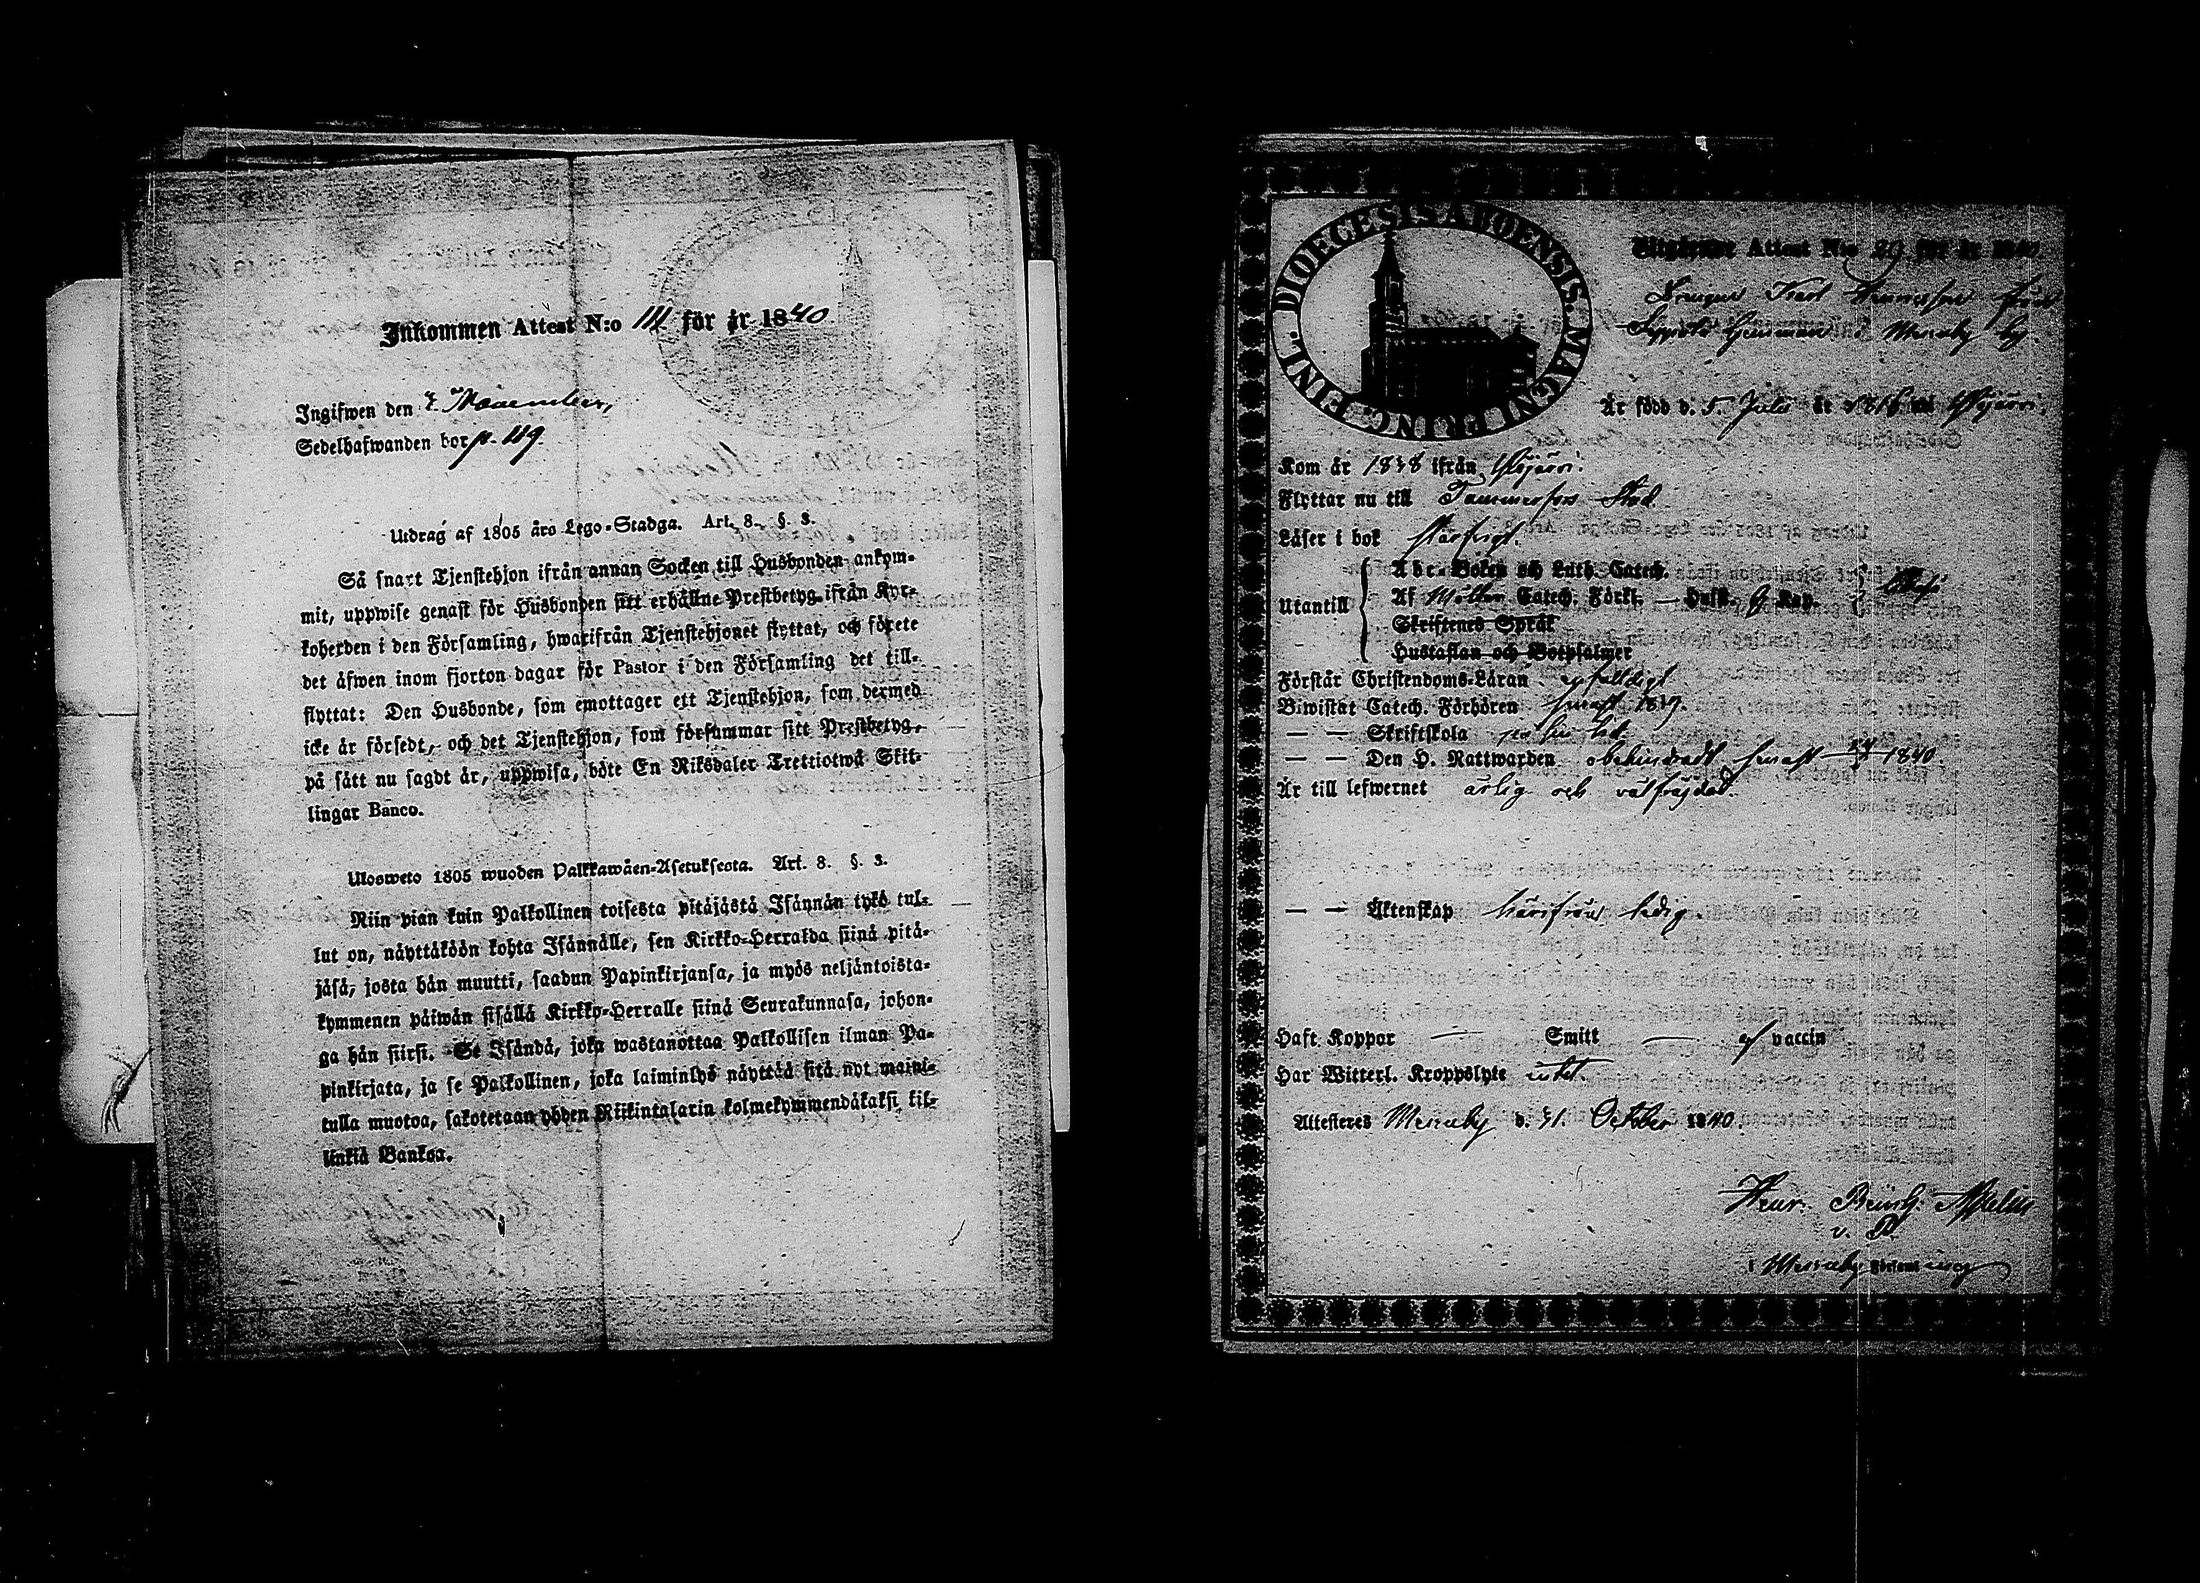 Inkommen Attest N:o 111 för år 1840
Ingifwen den 7. November,
Sedelhafwanden bor p. 119.
Utdrag af 1805 års Lego-Stadga. Art. 8. §. 3.
Så snart Tjenstehjon ifrån annan Socken till Husbonden ankom-
mit, uppwise genast för Husbonden sitt erhållne Prestbetyg ifrån Kyr-
koherden i den Församling, hwarifrån Tjenstehjonet flyttat, och förete
det äfwen inom fjorton dagar för Pastor i den Församling det till-
flyttat: Den Husbonde, som emottager ett Tjenstehjon, som dermed
icke är försedt, och det Tjenstehjon, som försummar sitt Prestbetyg,
på sätt nu sagdt är, uppwisa, böte En Riksdaler Trettiotwå Skil-
lingar Banco.
Ulosweto 1805 wuoden Palkkawäen-Asetuksesta. Art. 8. §. 3.
Niin pian kuin Palkollinen toisesta pitäjästä Isännän tykö tul-
lut on, näyttäköön kohta Isännälle, sen Kirkko-Herralda siinä pitä-
jäsä, josta hän muutti, saadun Papinkirjansa, ja myös neljäntoista-
kymmenen päiwän sisällä Kirkko-Herralle siinä Seurakunnasa, johon-
ga hän siirsi. Se Isändä, joka wastanottaa Palkollisen ilman Pa-
pinkirjata, ja se Palkollinen, joka laiminlyö näyttää sitä nyt maini-
tulla muotoa, sakotetaan yhden Riikintalarin kolmekymmendäkaksi kil-
linkiä Bankoa.
DIOECESIS ABOENSIS. MAGNI PRINC. FINL.
Utgående Attest N:o 29 för år 1840
Drengen Karl Henricsson från
Seppälä Hemman i Messuby by.
Är född d. 5. Julii år 1816 i
Kom år 1838 ifrån
Flyttar nu till Tammerfors Stad.
Läser i bok försvarligt.
Abc-Boken och Luth. Catech.
Utantill Af Möllers Catech. Förkl. — Hufst. 9 Kap.
Skriftenes Språk
Hustaflan och Botpsalmer
Förstår Christendoms-Läran enfaldigt
Biwistat Catech. Förhören senast 1839.
— — Skriftskola på sin tid.
— — Den H. Nattwarden obehindradt senast 1840.
Är till lefwernet ärlig och välfräjdad.
— — Äktenskap härifrån ledig.
Haft Koppor — Smitt — af vaccin
Har Witterl. Kroppslyte intet.
Attesteres Messuby d. 31. October 1840.
Henr. Reinh. Appelin
v. P.
i Messuby Församling